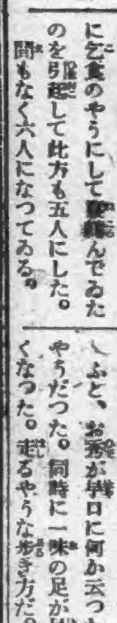 に乞食のやうにしてんでゐた
のを引起して此方も五人にした。
間もなく六人になつてゐる。
ふと、お秀が早口に何か云つ
やうだつた。同時に一味の足が
くなつた。走るやうな歩き方だ。